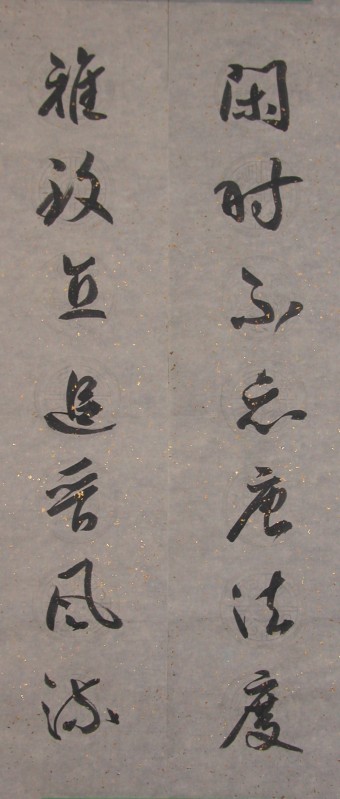 閑时不忘唐法度
雅致直追晋风流